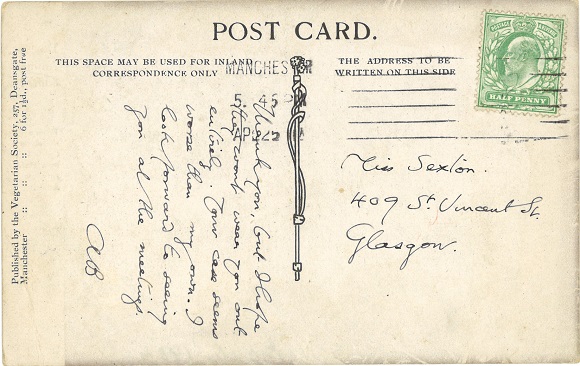 POST CARD.
THIS SPACE MAY BE USED FOR INLAND
CORRESPONDENCE ONLY
THE ADDRESS TO BE
WRITTEN ON THIS SIDE
MANCHESTER
5. 45 PM
AP 25
POSTAGE REVENUE
HALF PENNY
Thank you, but I hope
they won't wear you out
entirely. Your case seems
worse than my own. I
look forward to seeing
you at the meetings.
AB
Miss Sexton.
409 St. Vincent St.
Glasgow.
Published by the Vegetarian Society, 257, Deansgate,
Manchester :: :: :: 6 for 1½d., post free